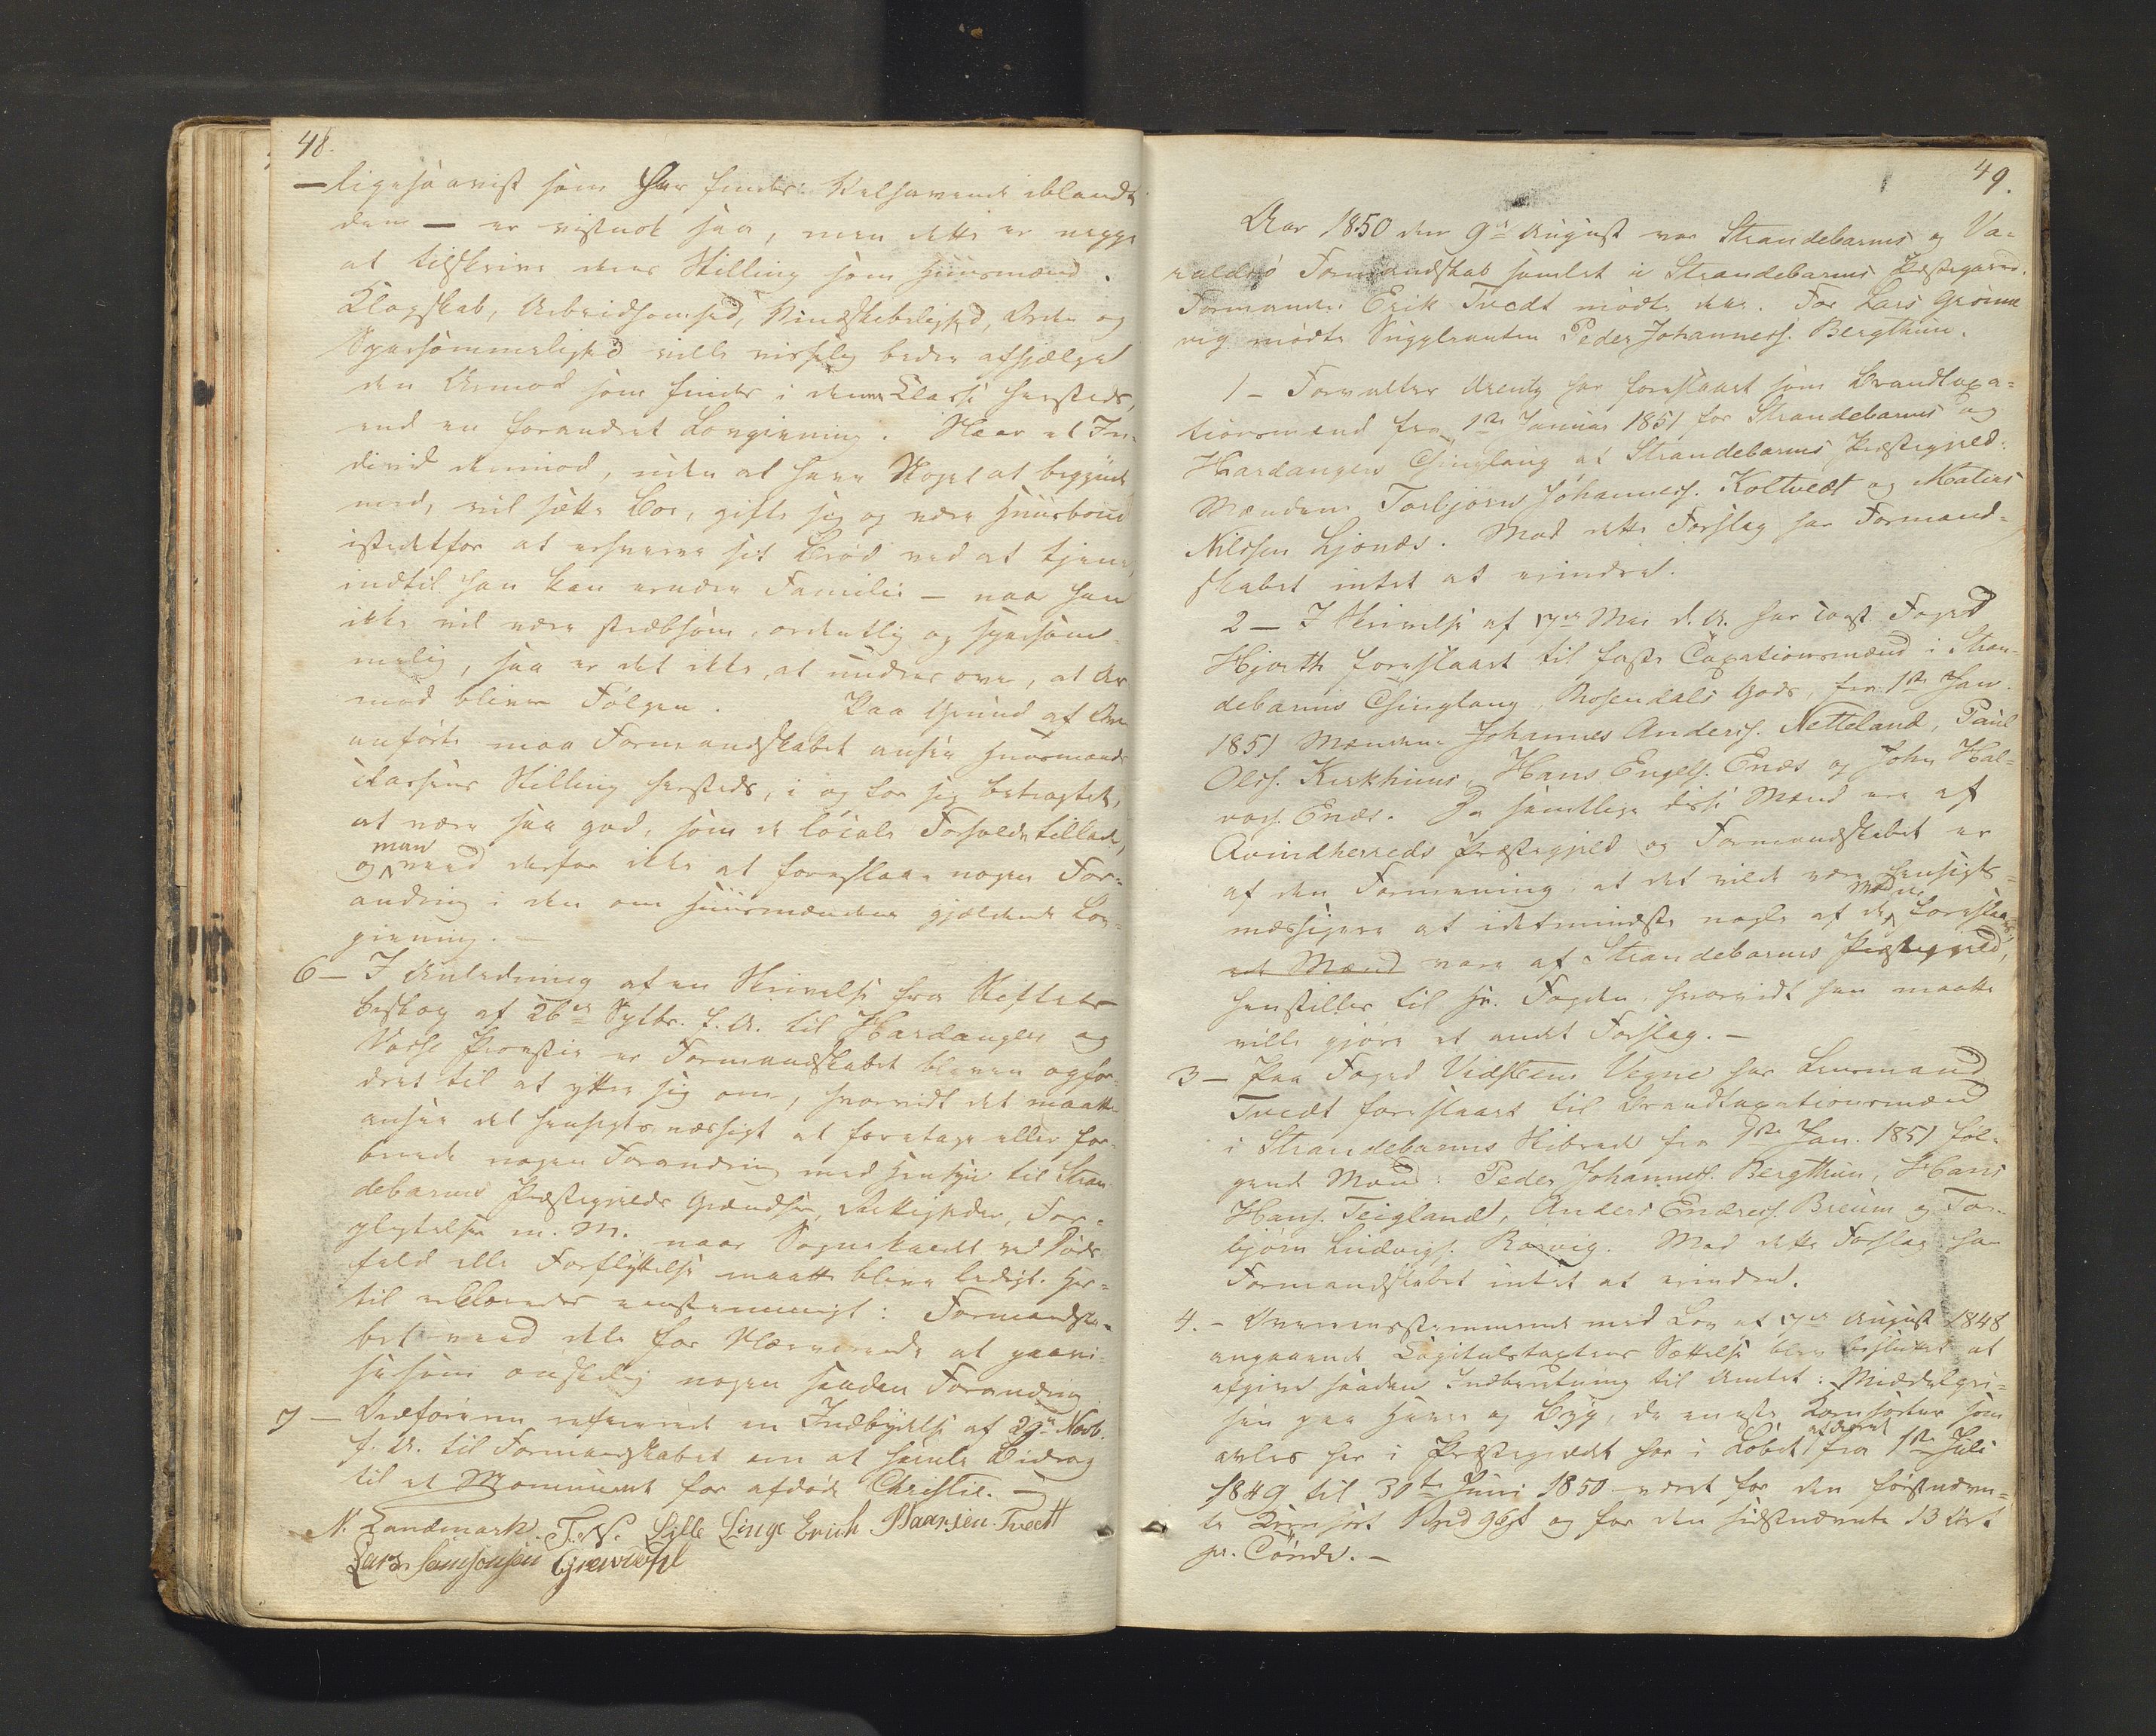 48.
– ligesaavist som her findes Velhavende iblandt
dem – er vistnok saa, men dette er neppe
at tilskrive deres Stilling som Huusmænd.
Klogskab, Arbeidsomhed, Vindskibelighed, Orden og
Sparsommelighed ville visselig bedre afhjælpe
den Armod som findes i denne Classe hersteds,
end en forandret Lovgivning. Naar et In-
divid derimod, uden at have Noget at begynde
med, vil sætte Boe, gifte sig og være Huusbond
istedetfor at erhverve sit Brød ved at tjene,
indtil han kan ernære Familie – naar han
ikke vil være stræbsom, ordentlig og sparsom-
melig, saa er det ikke at undres over, at Ar-
mod bliver Følgen. Paa Grund af det
anførte maa Formandskabet ansee Huusmands
classens Stilling hersteds, i og for sig betragtet,
at være saa god, som de locale Forholde tillade,
og man veed derfor ikke at foreslaae nogen For-
andring i den om Huusmændene gjældende Lov-
givning. –
6 – I Anledning af en Skrivelse fra Stiftets
Biskop af 26de Septbr. f. A. til Hardanger og
Vosse Provstie er Formandskabet bleven opfor-
dret til at yttre sig om, hvorvidt det maatte
ansee det hensigtsmæssigt at foretage eller for-
berede nogen Forandring med Hensyn til Stran-
debarms Præstegjelds Grændser, Rettigheder, For-
pligtelser m. M. naar Sognekaldet ved Døds-
fald eller Forflyttelse maatte blive ledigt. Her-
til erklæredes eenstemmigt: Formandska-
bet veed ikke for Nærværende at paavi-
se som ønskelig nogen saadan Forandring
7 – Ordføreren refererede en Indbydelse af 29de Novb.
f. A. til Formandskabet om at samle Bidrag
til et Monument for afdøde Christie. –
N. Landmark. T. N. Lille Linge Erich Baarsen Tvedt
Lars Samsonsen
49.
Aar 1850 den 9de August var Strandebarms og Va-
raldsø Formandskab samlet i Strandebarms Præstegaard.
Formanden Erik Tvedt mødte ikke. For Lars Grønne
vig mødte Suppleanten Peder Johanness. Bergthun.
1 – Forvalter har foreslaaet som Brandtaxa-
tionsmænd fra 1ste Januar 1851 for Strandebarms og
Hardangers Thinglaug af Strandebarms Præstegjeld:
Mændene Torbjørn Johanness. Koltvedt og Matias
Nilssen Ljonæs. Mod dette Forslag har Formand-
skabet intet at erindre.
2 – I Skrivelse af 17de Mai d. A. har const. Foged
Hjorth foreslaaet til faste Taxationsmænd i Stran-
debarms Thinglaug, Rosendals Gods, fra 1ste Jan.
1851 Mændene Johannes Anderss. Netteland, Paul
Olss. Kirkhuus, Hans Engelss. Enæs og John Hal-
vors. Enæs. Da samtlige disse Mænd ere af
Qvindherreds Præstegjeld og Formandskabet er
af den Formening, at det vilde være hensigts-
mæssigere at idetmindste nogle af de Mænd Foreslaa-
ede Mænd vare af Strandebarms Præstegjeld,
henstilles til Hr. Fogden, hvorvidt han maatte
ville gjøre et andet Forslag. –
3 – Paa Foged Vidsteens Vegne har Lensmand
Tvedt foreslaaet til Brandtaxationsmænd
i Strandebarms Skibrede fra 1ste Jan. 1851 føl-
gende Mænd: Peder Johanness. Bergthun, Hans
Hans. Teigland, Anders Endress. Breum og Tor-
bjørn Ludvigs. Rosvig. Mod dette Forslag har
Formandskabet intet at erindre.
4. – Overeensstemmende med Lov af 17de August 1848
angaaende Capitulstaxtens Sættelse blev besluttet at
afgive saadan Indberetning til Amtet: Middelpri-
sen paa Havre og Byg, de eneste Kornsorter som
avles her i Præstegjeldet har i Løbet af Aaret fra 1ste Juli
1849 til 30te Juni 1850 været for den førstnævn-
te Kornsort og for den sidstnævnte 13 Ort
pr. Tønde. –